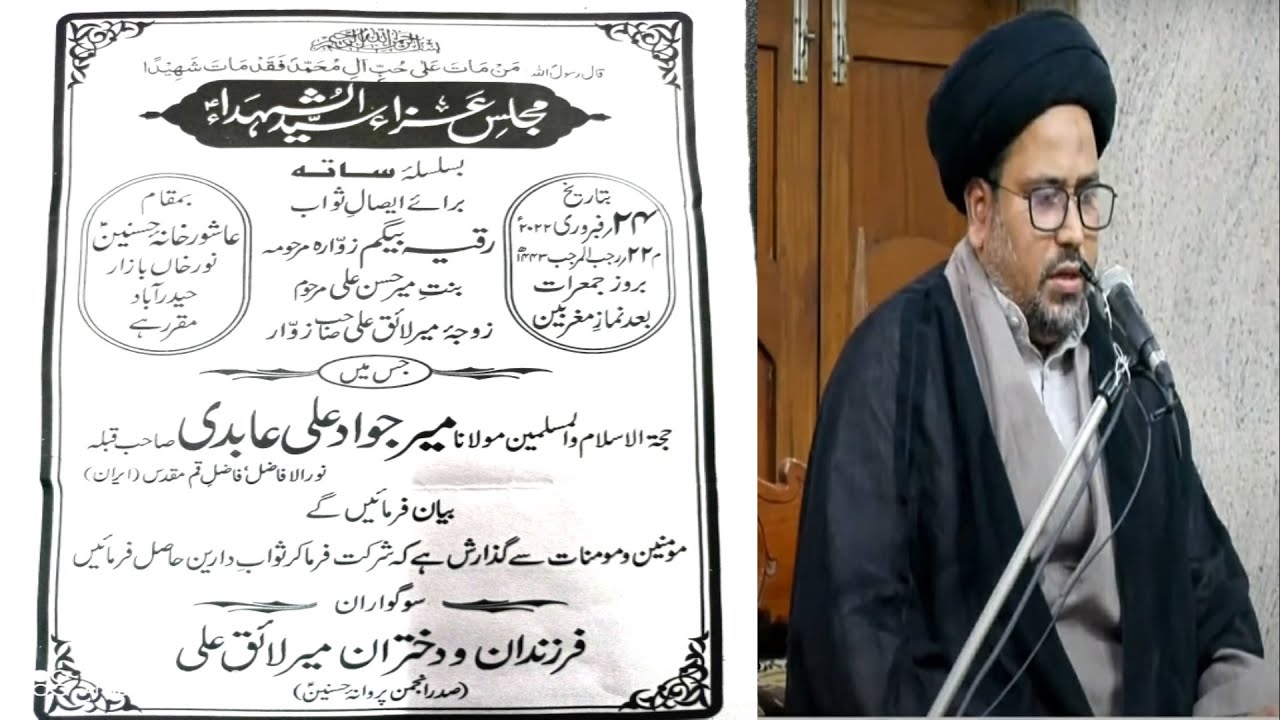 بسم اللہ الرحمن الرحیم
قال رسول اللہ مَنْ مَاتَ عَلٰی حُبِّ آلِ مُحَمَّدٍ فَقَدْ مَاتَ شَهِیْدًا
مجلسِ عزاء سیّد الشہداءؑ
بسلسلۂ ساتہ
برائے ایصالِ ثواب
رقیہ بیگم زوّارہ مرحومہ
بنتِ میر حسن علی مرحوم
زوجۂ میر لائق علی صاحب زوّار
بتاریخ
۲۴؍ فبروری ۲۰۲۲ء
م ۲۲؍ رجب المرجب ۱۴۴۳ھ
بروز جمعرات
بعد نمازِ مغربین
بمقام
عاشور خانۂ حسنینؑ
نور خاں بازار
حیدرآباد
مقرر ہے
جس میں
حجۃ الاسلام والمسلمین مولانا میر جواد علی عابدی صاحب قبلہ
نورالافاضل، فاضلِ قم مقدس (ایران)
بیان فرمائیں گے
مومنین و مومنات سے گذارش ہے کہ شرکت فرما کر ثوابِ دارین حاصل فرمائیں
سوگواران
فرزندان و دختران میر لائق علی
(صدر انجمن پروانۂ حسنینؑ)